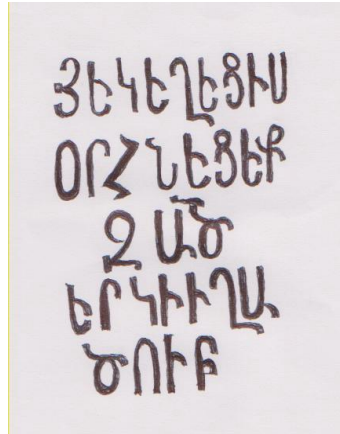 ՅԵԿԵՂԵՑԻՍ
ՕՐՀՆԵՑԵՔ
ԶԱԾ
ԵՐԿԻՒՂԱ
ԾՈՒԲ